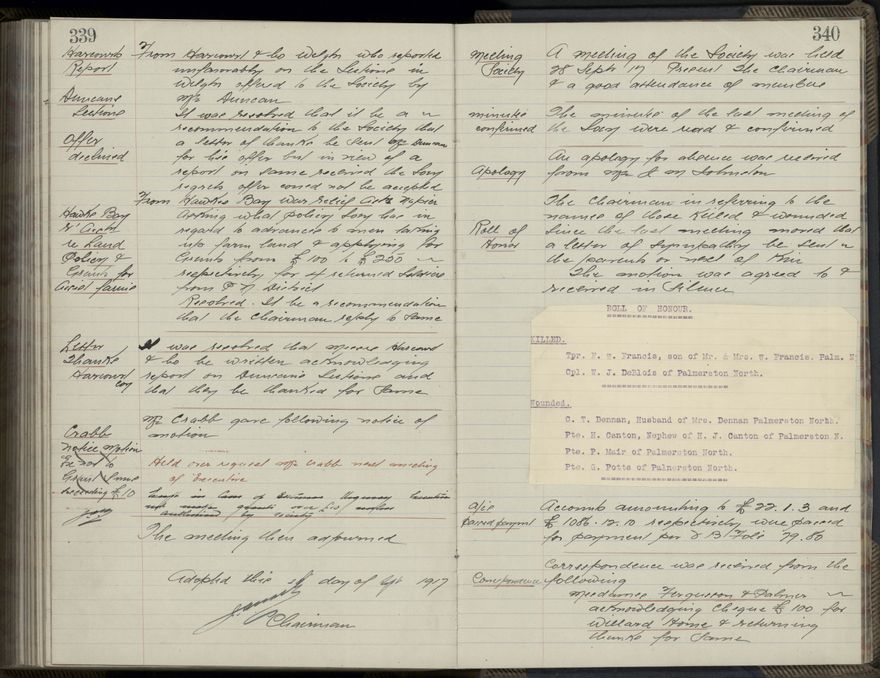 339
Harcourts
Report
From Harcourt & Co Welgtn who reported
unfavorably on the Sections in
Welgtn offered to the Society by
Mr Duncan
Duncans
Sections
Offer
declined
It was resolved that it be a
recommendation to the Society that
a letter of thanks be sent Mr Duncan
for his offer but in view of a
report on same received the Socy
regrets offer could not be accepted
Hawkes Bay
re Land
Policy &
Grants for
From Hawkes Bay War Relief Assn Napier
Asking what policy Socy has in
regard to advances to men taking
up farm land & applying for
Grants from £100 to £200
respectively for 4 returned Soldiers
from P N District
Resolved. It be a recommendation
that the Chairman reply to same
Letter
Thanks
Harcourt
Coy
It was resolved that Messrs Harcourt
& Co be written acknowledging
report on Duncans Sections and
that they be thanked for same
Crabb
notice motion
Ex not to
Grant sums
exceeding £10
Mr Crabb gave following notice of
motion
Held over request Mr Crabb next meeting
of Executive
Except in case of Extreme Urgency Executive
not make grants over £10 unless
authorised by society
The meeting then adjourned
Adopted this day of 1917
Chairman
340
Meeting
Society
A meeting of the Society was held
28 Septr 17 Present The Chairman
& a good attendance of members
minutes
confirmed
The minutes of the last meeting of
the Socy were read & confirmed
Apology
An apology for absence was received
from Mr J M Johnston
Roll of
Honor
The Chairman in referring to the
names of those killed & wounded
since the last meeting moved that
a letter of sympathy be sent
the parents or next of kin
The motion was agreed to &
received in silence
ROLL OF HONOUR.
KILLED.
Tpr. F. W. Francis, son of Mr. & Mrs. W. Francis. Palm. N
Cpl. W. J. DeBlois of Palmerston North.
Wounded.
C. T. Dennan, Husband of Mrs. Dennan Palmerston North.
Pte. H. Canton, Nephew of H. J. Canton of Palmerston N.
Pte. P. Mair of Palmerston North.
Pte. G. Potts of Palmerston North.
a/cs
passed payment
Accounts amounting to £22.1.3 and
£1086.12.10 respectively were passed
for payment per D B Folio 79.80
Correspondence
Correspondence was received from the
following
Mesdames Ferguson & Palmer
acknowledging cheque £100 for
Willard Home & returning
thanks for same